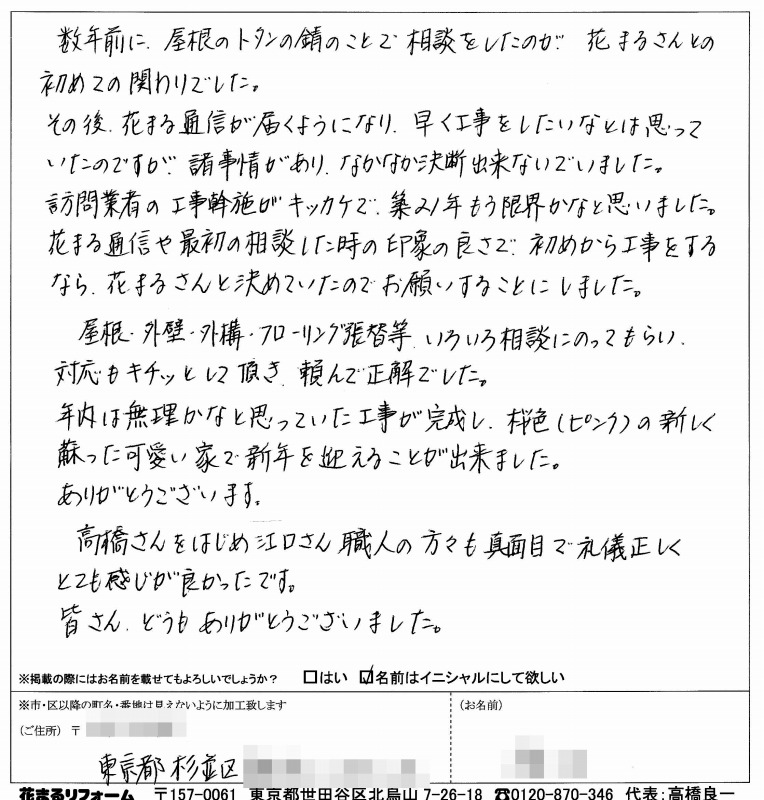 数年前に、屋根のトタンの錆のことで相談をしたのが 花まるさんとの
初めての関わりでした。
その後、花まる通信が届くようになり、早く工事をしたいなとは思って
いたのですが、諸事情があり、なかなか決断出来ないでいました。
訪問業者の工事斡施がキッカケで、築21年もう限界かなと思いました。
花まる通信や最初の相談した時の印象の良さで、初めから工事をする
なら、花まるさんと決めていたのでお願いすることにしました。
屋根・外壁・外構・フローリング張替等、いろいろ相談にのってもらい、
対応もキチッとして頂き、頼んで正解でした。
年内は無理かなと思っていた工事が完成し、桜色(ピンク)の新しく
蘇った可愛い家で新年を迎えることが出来ました。
ありがとうございます。
高橋さんをはじめ江口さん職人の方々も真面目で礼儀正しく
とても感じが良かったです。
皆さん、どうもありがとうございました。
※掲載の際にはお名前を載せてもよろしいでしょうか? □はい ☑名前はイニシャルにして欲しい
※市・区以降の町名・番地は見えないように加工致します
(ご住所) 〒
(お名前)
東京都杉並区
花まるリフォーム 〒157-0061 東京都世田谷区北烏山 7-26-18 ☎0120-870-346 代表:高橋良一